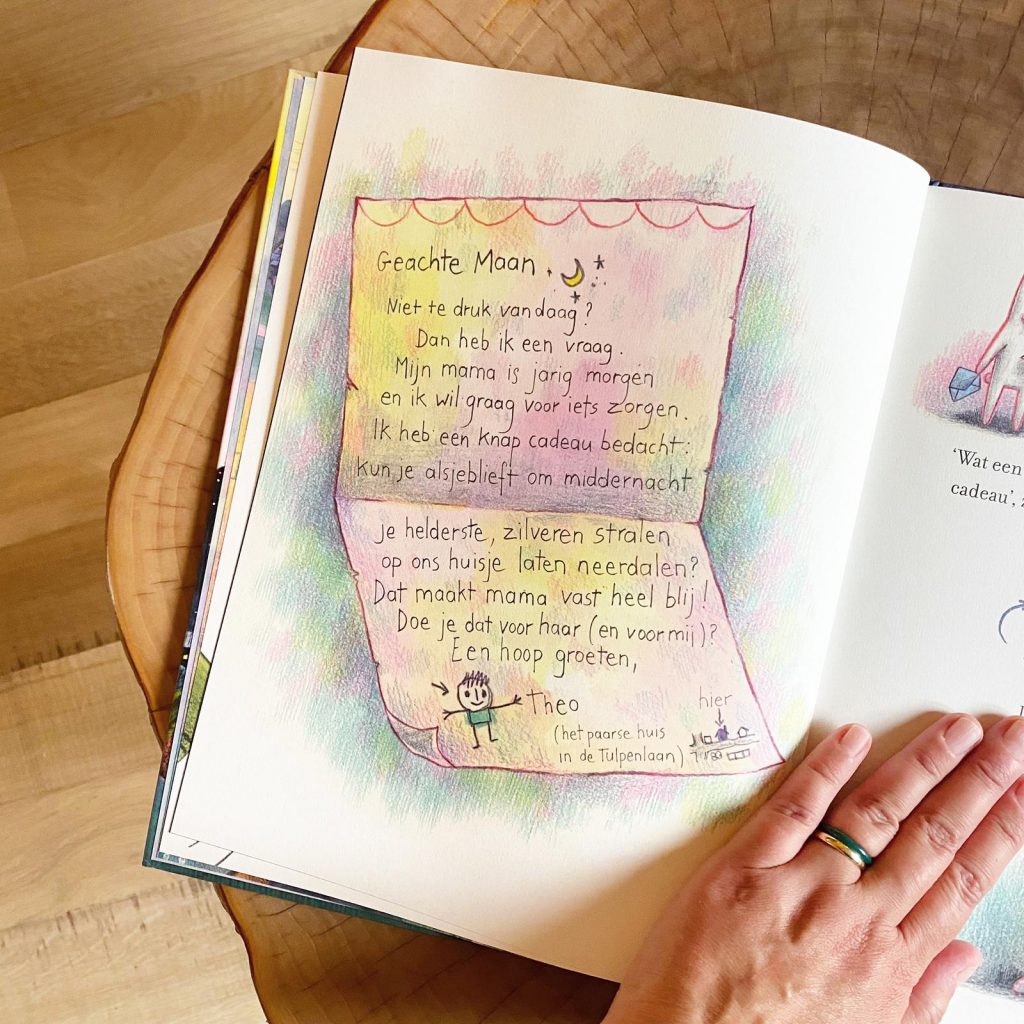 Geachte Maan,
Niet te druk vandaag?
Dan heb ik een vraag.
Mijn mama is jarig morgen
en ik wil graag voor iets zorgen.
Ik heb een knap cadeau bedacht:
kun je alsjeblieft om middernacht
je helderste, zilveren stralen
op ons huisje laten neerdalen?
Dat maakt mama vast heel blij!
Doe je dat voor haar (en voor mij)?
Een hoop groeten,
Theo
hier
(het paarse huis
in de Tulpenlaan)
'Wat een
cadeau',